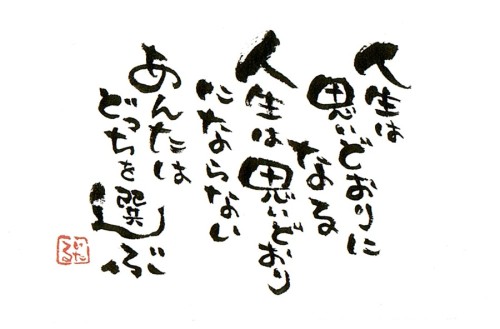 人生は
思いどおりに
なる
人生は思いどおり
にならない
あんたは
どっちを選ぶ